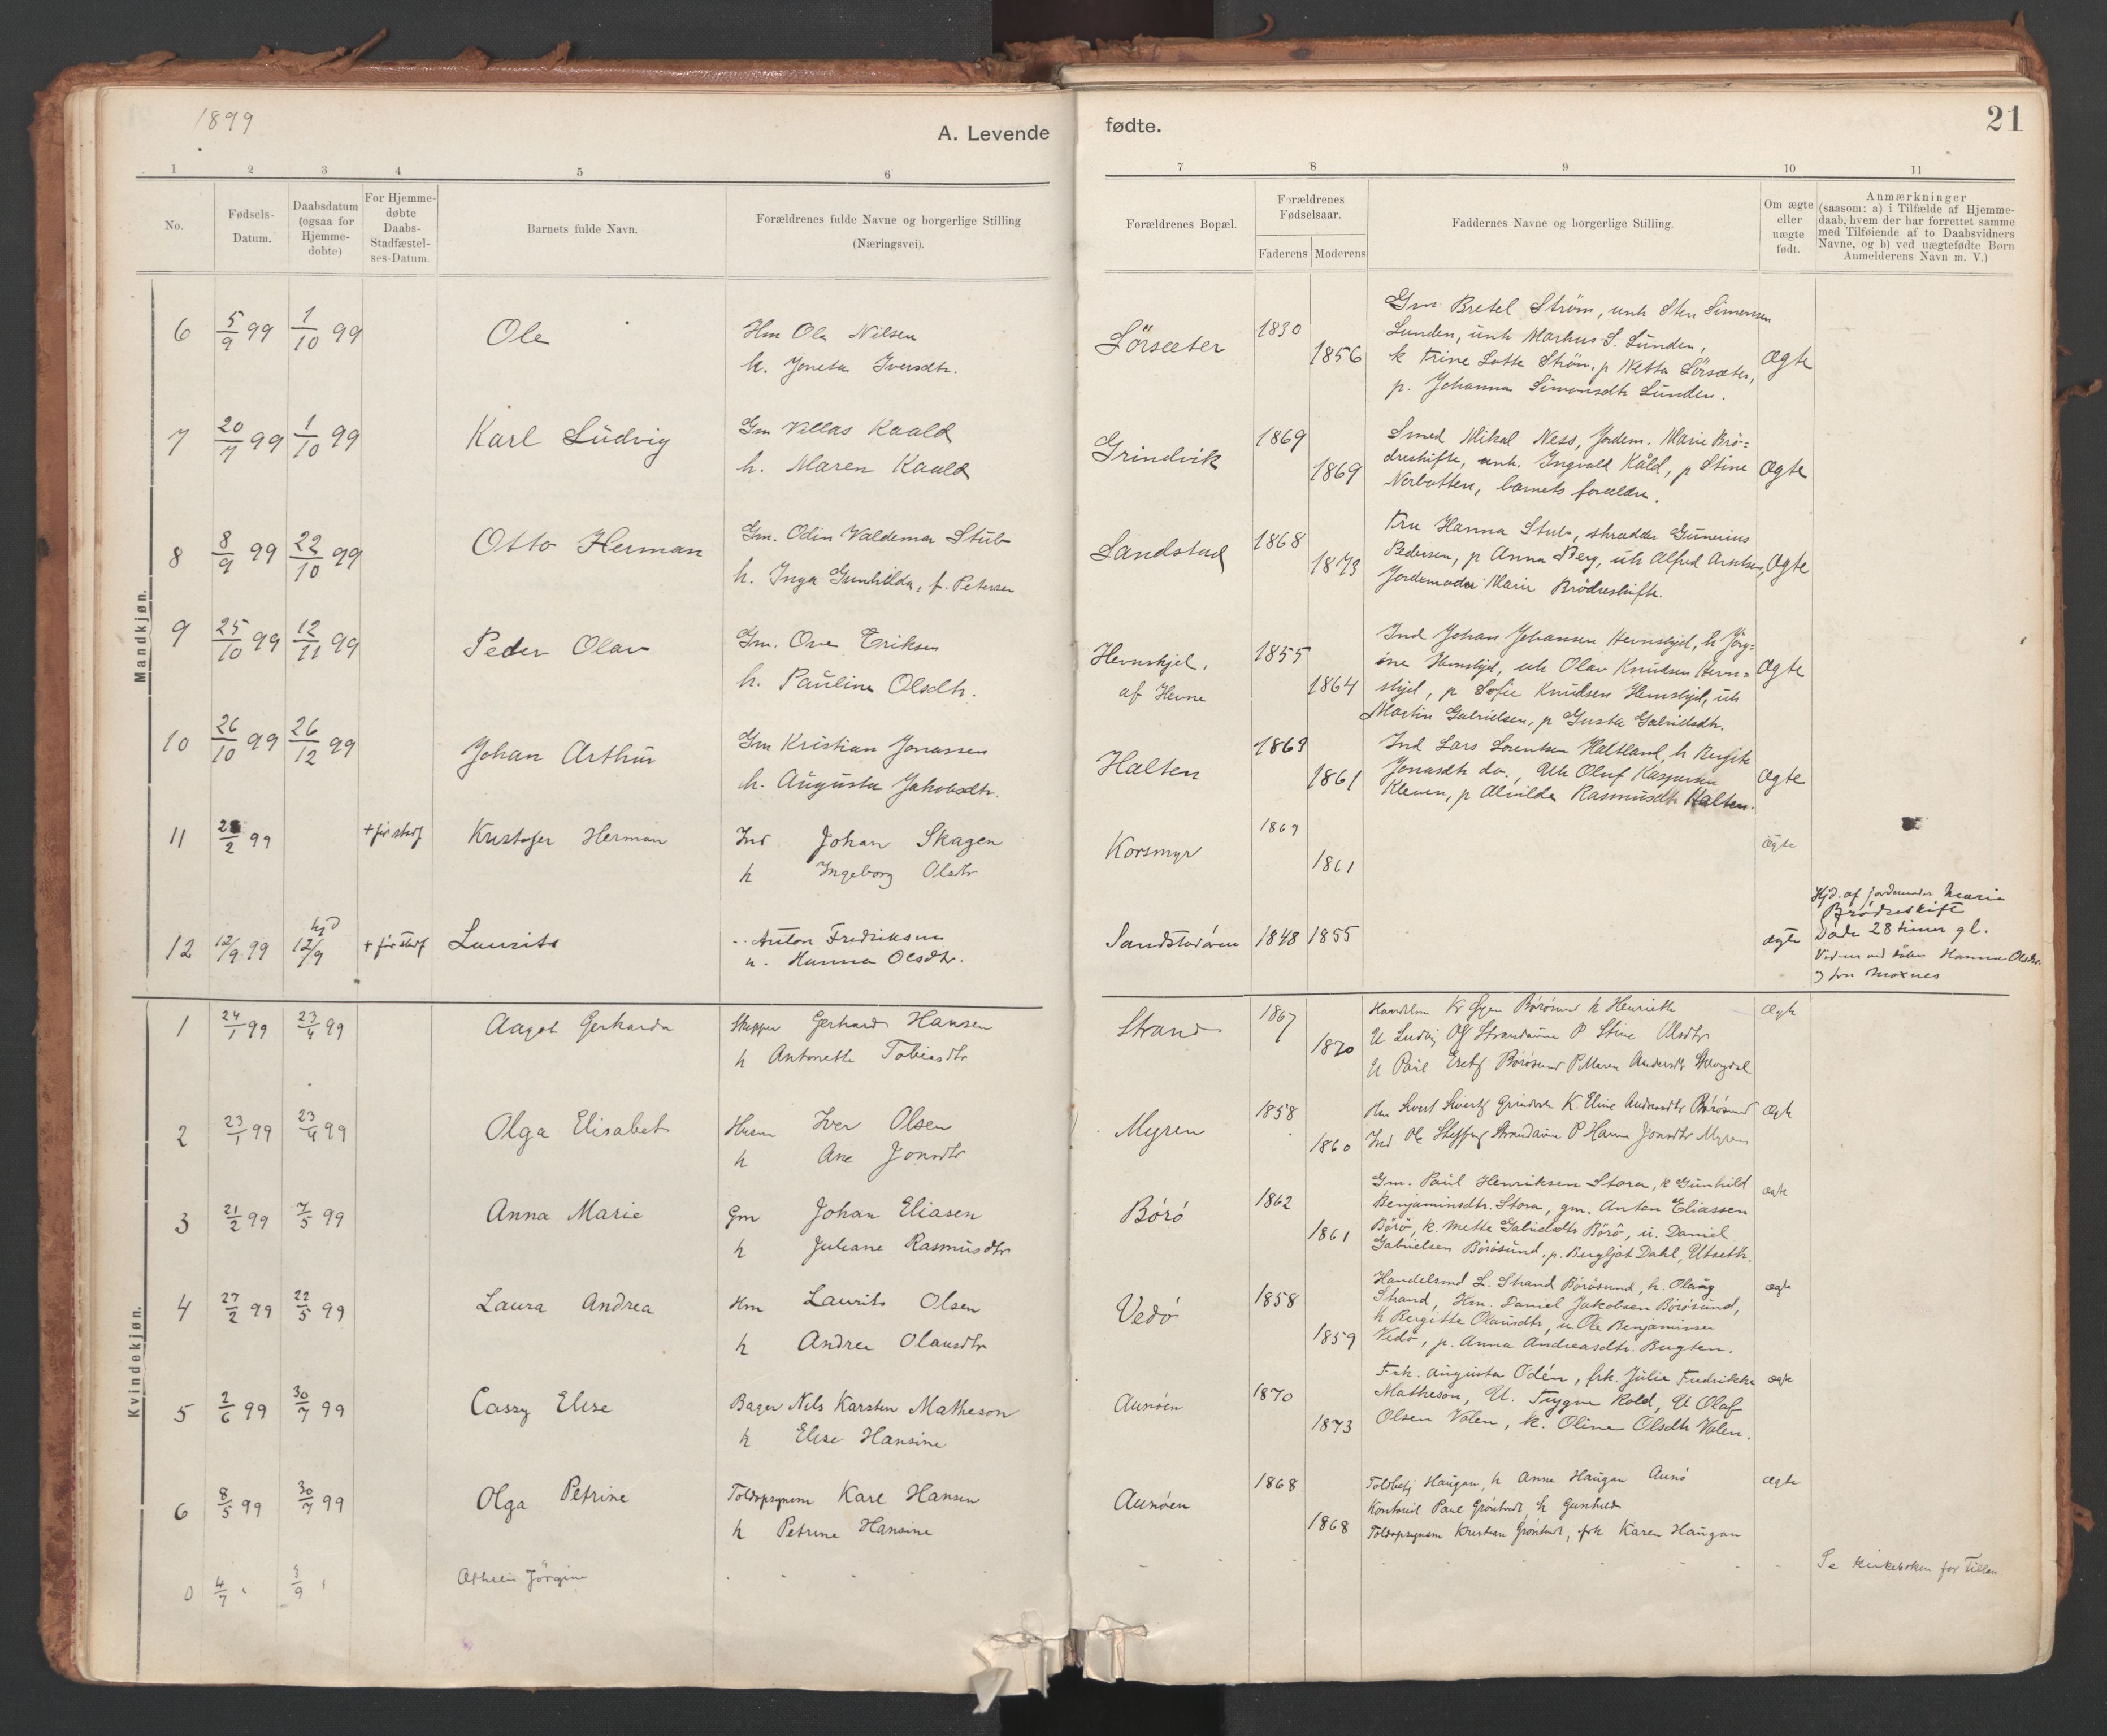 1899
A. Levende
fødte.
21
1 2 3 4 5 6 7 8 9 10 11
No.
Fødsels-
Datum.
Daabsdatum
(ogsaa for
Hjemme-
døbte)
For Hjemme-
døbte
Daabs-
Stadfæstel-
ses-Datum.
Barnets fulde Navn.
Forældrenes fulde Navne og borgerlige Stilling
(Næringsvei).
Forældrenes Bopæl.
Forældrenes
Fødselsaar.
Faderens Moderens
Faddernes Navne og borgerlige Stilling.
Om ægte
eller
uægte
født.
Anmærkninger
(saasom: a) i Tilfælde af Hjemme-
daab, hvem der har forrettet samme
med Tilføiende af to Daabsvidners
Navne, og b) ved uægtefødte Børn
Anmelderens Navn m. V.)
Mandkjøn.
6 5/9 99 1/10 99 Ole
Hm Ole Nilsen
k. Joneta Iversdtr.
Sörsæter
1830
1856
Gm Bretel Ström, unk Sten Simonsen
Lunden, unk Markus S. Lunden,
k Trine Lotte Ström, p Netta Sörsæter,
p. Johanna Simonsdtr Lunden.
Ægte
7 20/7 99 1/10 99 Karl Ludvig
Gm Villas Kaald
h. Maren Kaald
Grindvik
1869
1869
Smed Mikal Ness, Jordem. Marie Brö=
dreskifte, unk. Ingvald Kåld, p Stine
Norbotten, barnets forældre.
Ægte
8 8/9 99 22/10 99 Otto Herman
Gm. Odin Valdemar Stub
h. Inga Gunhilda, f. Petersen
Sandstad
1868
1873
Fru Hanna Stub, skrædder Gunerius
Pedersen, p Anna Berg, uk Alfred Arntsen,
Jordemoder Marie Brödreskifte.
Ægte
9 25/10 99 12/11 99 Peder Olav
Gm. Ove Eriksen
h. Pauline Olsdtr.
Hevnskjel,
af Hevne
1855
1864
Ind Johan Johansen Hevnskjel, k Jörg=
ine Hevnskjel, uk Olav Knudsen Hevn=
skjel, p Sofie Knudsen Hevnskjel, uk
Martin Gabrielsen, p Gusta Gabrielsdtr.
Ægte
10 26/10 99 26/12 99 Johan Arthur
Gm Kristian Jonassen
h. Augusta Jakobsdtr.
Halten
1869
1861
Ind Lars Lorentsen Haltland, h Bergite
Jonasdtr do., Uk Oluf Kaspersen
Kleven, p Alvilde Rasmusdtr Halten.
Ægte
11 28/2 99 + før stadf Kristofer Herman
Ind Johan Skagen
h Ingeborg Olsdtr
Korsmyr
1869
1861
ægte
12 12/9 99 hjd 12/9 + før stadf Laurits
Anton Fredriksen
h. Hanna Olsdtr.
Sandstadøren
1848 1855
ægte
Hjd. af jordemoder Maria
Brødreskift
Døde 28 timer gl.
Vidner ved dåben Hanna Olsdtr.
og fru Moxnes
Kvindekjøn.
1 24/1 99 23/4 99 Aagot Gerharda
Skipper Gerhard Hansen
h Antonette Tobiasdtr
Strand
1867
1870
Handelsm Kr Børøsund h Henriette
U Ludvig Strandavine P Stine Olsdtr
U Paul Børøsund P Maren Andersdtr
Ægte
2 23/1 99 23/4 99 Olga Elisabet
Husm Iver Olsen
h Ane Jonsdtr
Myren
1858
1860
Hm Sivert Sivertz Grindvik K. Eline Andersdtr Børøsund
Ind Ole Steffens Strandavine P Hanna Jonsdtr Myren
Ægte
3 21/2 99 7/5 99 Anna Marie
Gm Johan Eliasen
h Juliane Rasmusdtr
Børø
1862
1861
Gm. Paul Henriksen Stora, k Gunhild
Benjaminsdtr. Stora, gm. Anton Eliassen
Børø, k. Mette Gabrielsdtr Børø, u. Daniel
Gabrielsen Børøsund, p. Bergljot Dahl, Utseth.
ægte
4 27/2 99 22/5 99 Laura Andrea
Hm Laurits Olsen
h Andrea Olausdtr
Vedø
1858
1859
Handelsmd L. Strand Børøsund, h. Olaug
Strand, Hm. Daniel Jakobsen Børøsund,
h Bergitte Olausdtr, u. Ole Benjaminsen
Vedø, p. Anna Andreasdtr. Bugten.
ægte
5 2/6 99 30/7 99 Cassy Elise
Bager Nils Karsten Matheson
h Elise Hansine
Aunøen
1870
1873
Frk. Augusta Odén, frk. Julie Fredrikke
Matheson, U. Trygve Kold, U Olaf
Olsen Volen, k. Oline Olsdtr Volen.
ægte
6 8/5 99 30/7 99 Olga Petrine
Toldopsynsm Karl Hansen
h Petrine Hansine
Aunøen
1868
1868
Toldbetj Haugan, h Anne Haugan Aunø
Paul Grøntvedt, h Gunhild
Toldopsynsm Kristian Grøntvedt, frk Karen Haugan
ægte
0 4/7 " 3/9 " Jörgine
Se kirkeboken for Fillan